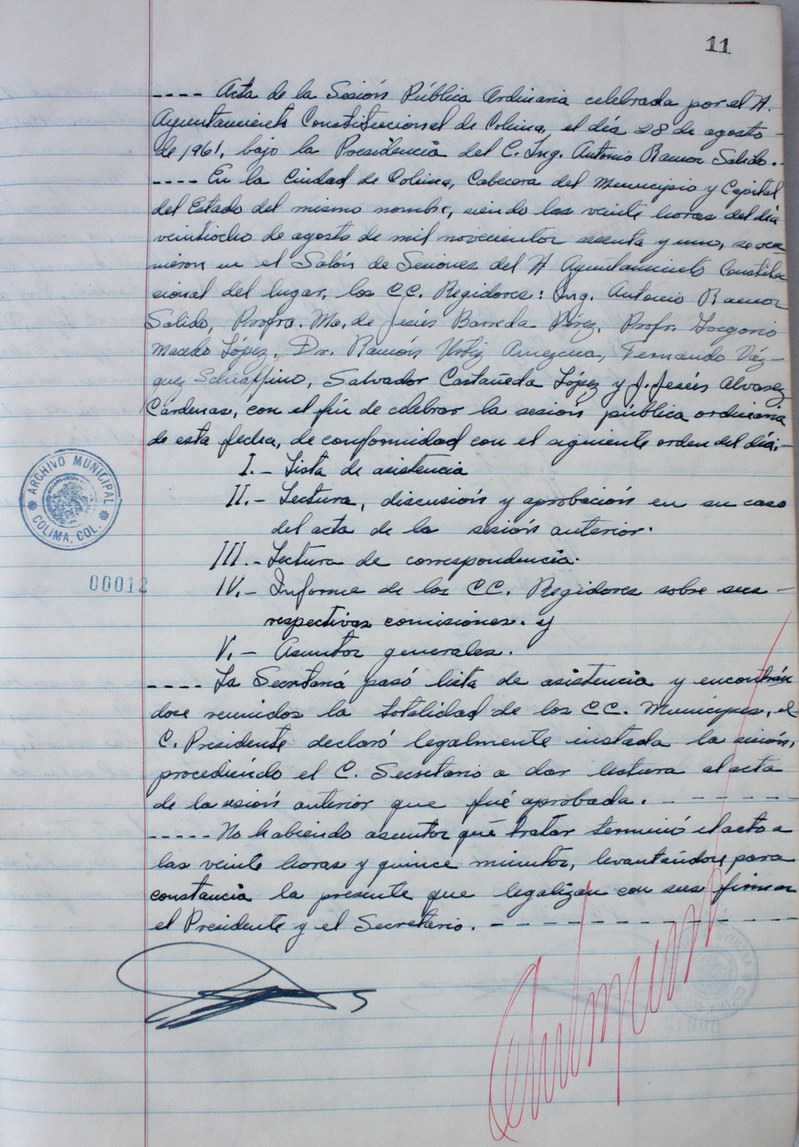 11
---- Acta de la Sesión Pública Ordinaria celebrada por el H.
Ayuntamiento Constitucional de Colima, el día 28 de agosto -
de 1961, bajo la Presidencia del C. Ing. Antonio Ramos Salido.-
---- En la Ciudad de Colima, Cabecera del Municipio y Capital
del Estado del mismo nombre, siendo las veinte horas del día
veintiocho de agosto de mil novecientos sesenta y uno, se reu
nieron en el Salón de Sesiones del H Ayuntamiento Constitu
cional del lugar, los CC. Regidores: Ing. Antonio Ramos
Salido, Profra. Ma. de Jesús Barreda Pérez, Profr. Gregorio
Macedo López, Dr. Ramón Ortiz Amezcua, Fernando Váz-
quez Schiaffino, Salvador Castañeda López y J. Jesús Alvarez
Cárdenas, con el fin de celebrar la sesión pública ordinaria
de esta fecha, de conformidad con el siguiente orden del día:-
I.- Lista de asistencia
II.- Lectura, discusión y aprobación en su caso
del acta de la sesión anterior.
III.- Lectura de correspondencia.
IV.- Informe de los CC. Regidores sobre sus -
respectivas comisiones. y
V.- Asuntos generales.
---- La Secretaría pasó lista de asistencia y encontrán
dose reunidos la totalidad de los CC. Munícipes, el
C. Presidente declaró legalmente instada la sesión,
procediendo el C. Secretario a dar lectura al acta
de la sesión anterior que fué aprobada. - - - - - -
----- No habiendo asuntos que tratar terminó el acto a
las veinte horas y quince minutos, levantándose para
constancia la presente que legalizan con sus firmas
el Presidente y el Secretario. - - - - - - - - - - - -
ARCHIVO MUNICIPAL
COLIMA, COL.
00012